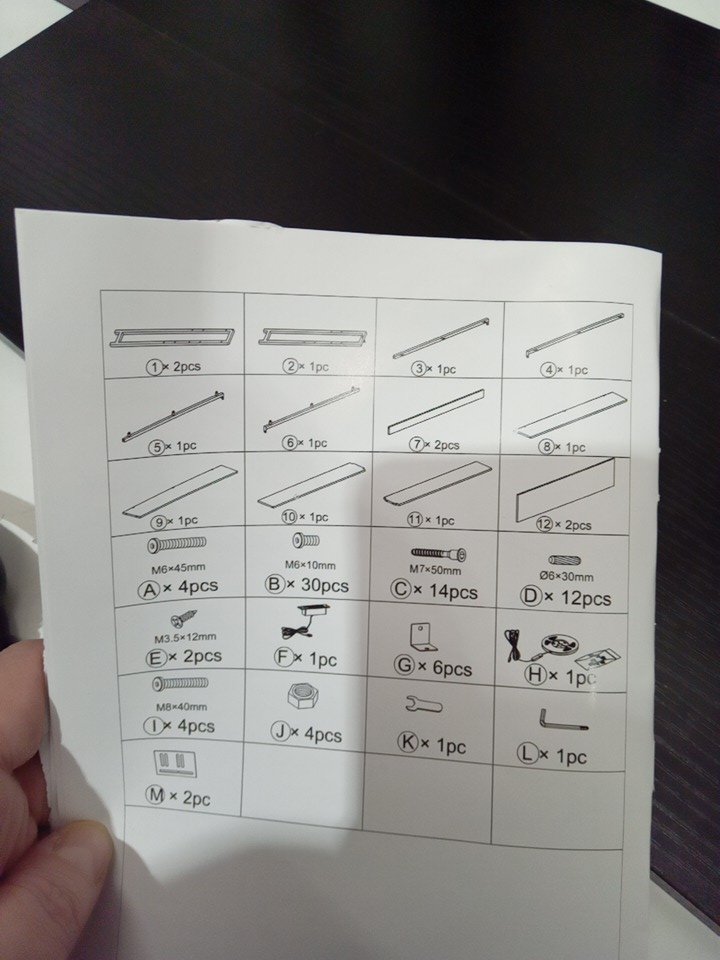 ① × 2pcs
② × 1pc
③ × 1pc
④ × 1pc
⑤ × 1pc
⑥ × 1pc
⑦ × 2pcs
⑧ × 1pc
⑨ × 1pc
⑩ × 1pc
⑪ × 1pc
⑫ × 2pcs
M6×45mm
Ⓐ × 4pcs
M6×10mm
Ⓑ × 30pcs
M7×50mm
Ⓒ × 14pcs
Ø6×30mm
Ⓓ × 12pcs
M3.5×12mm
Ⓔ × 2pcs
Ⓕ × 1pc
Ⓖ × 6pcs
Ⓗ × 1pc
M8×40mm
Ⓘ × 4pcs
Ⓙ × 4pcs
Ⓚ × 1pc
Ⓛ × 1pc
Ⓜ × 2pc